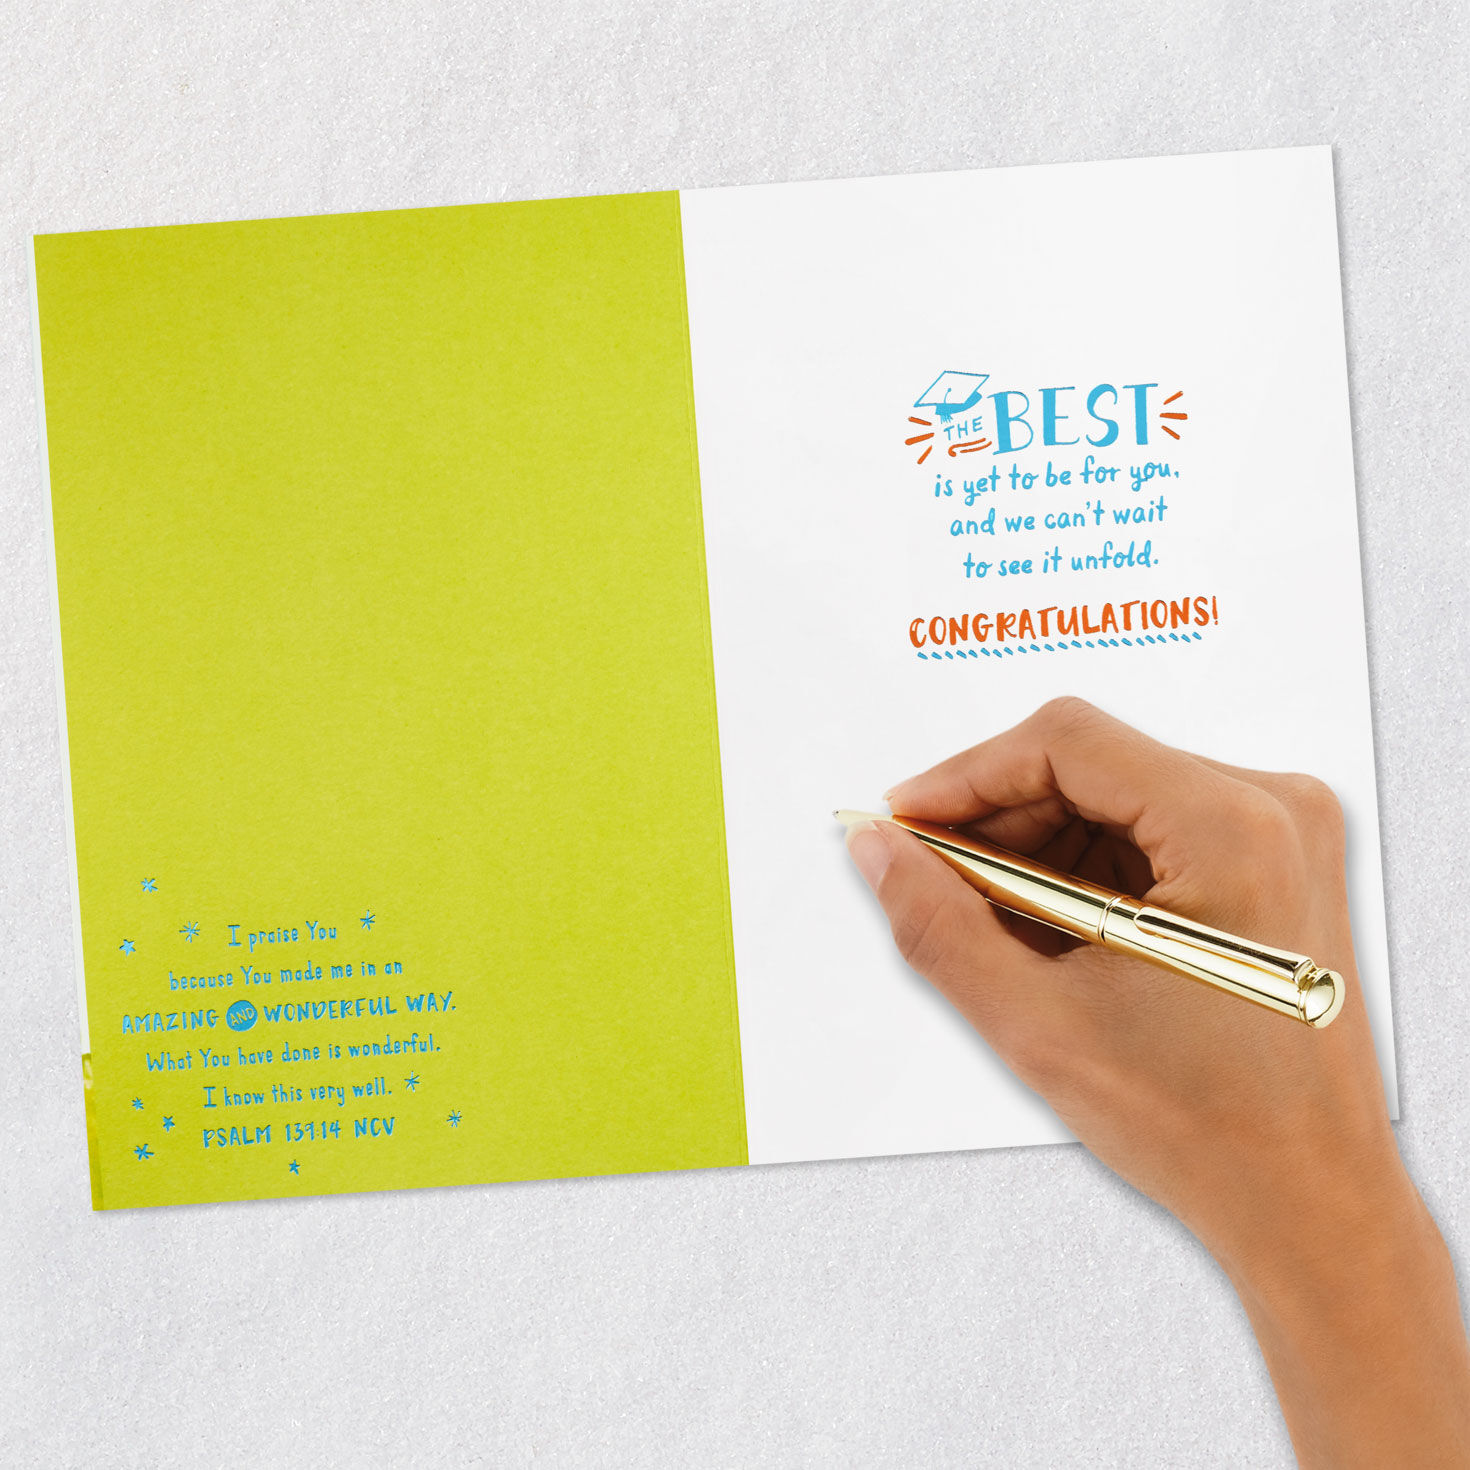 I praise You
because You made me in an
AMAZING AND WONDERFUL WAY.
What You have done is wonderful.
I know this very well.
PSALM 139:14 NCV
THE BEST
is yet to be for you,
and we can't wait
to see it unfold.
CONGRATULATIONS!